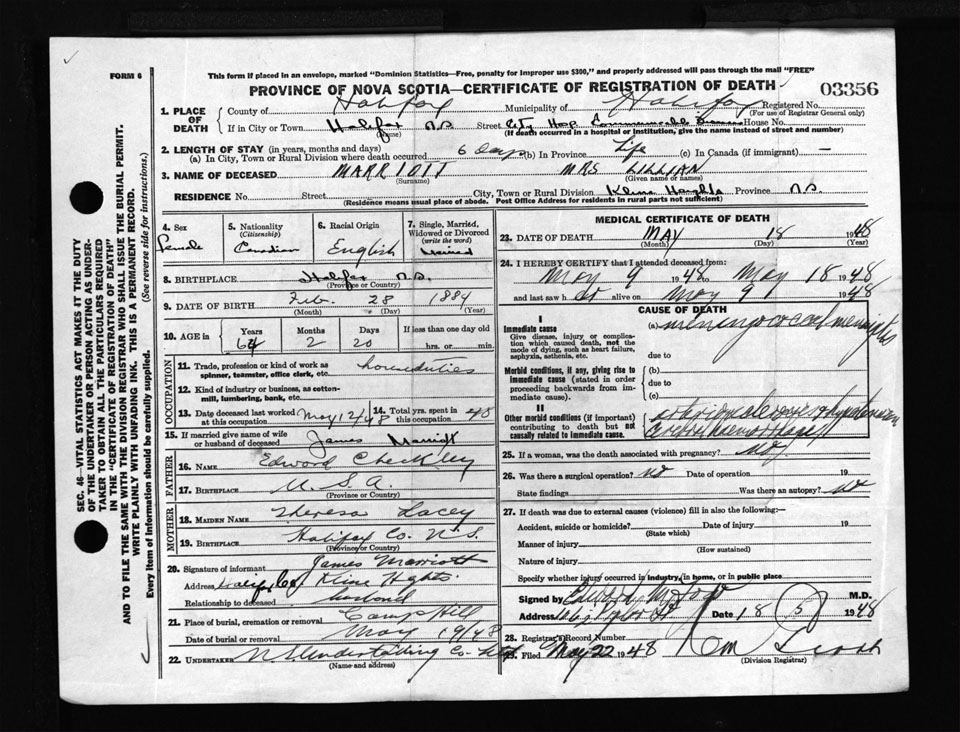 FORM 6
This form if placed in an envelope, marked "Dominion Statistics—Free, penalty for improper use $300," and properly addressed will pass through the mail "FREE"
PROVINCE OF NOVA SCOTIA—CERTIFICATE OF REGISTRATION OF DEATH
03356
1. PLACE OF DEATH
County of Halifax Municipality of Halifax Registered No.
(For use of Registrar General only)
If in City or Town Halifax N.S. Street City Hosp House No.
(Name) (If death occurred in a hospital or institution, give the name instead of street and number)
2. LENGTH OF STAY (in years, months and days)
(a) In City, Town or Rural Division where death occurred 6 Days (b) In Province Life (c) In Canada (if immigrant) —
3. NAME OF DECEASED MARRIOTT MRS LILLIAN
(Surname) (Given name or names)
RESIDENCE No. Street City, Town or Rural Division Kline Heights Province N.S.
(Residence means usual place of abode. Post Office Address for residents in rural parts not sufficient)
4. Sex
Female
5. Nationality
(Citizenship)
Canadian
6. Racial Origin
English
7. Single, Married, Widowed or Divorced
(write the word)
Married
8. BIRTHPLACE Halifax N.S.
(Province or Country)
9. DATE OF BIRTH Feb. 28 1884
(Month) (Day) (Year)
10. AGE in
Years Months Days If less than one day old
64 2 20 hrs. or min.
OCCUPATION
11. Trade, profession or kind of work as spinner, teamster, office clerk, etc. homeduties
12. Kind of industry or business, as cotton-mill, lumbering, bank, etc.
13. Date deceased last worked at this occupation May 12/48
14. Total yrs. spent in this occupation 40
15. If married give name of wife or husband of deceased James Marriott
FATHER
16. NAME Edward Checkley
17. BIRTHPLACE U.S.A.
(Province or Country)
MOTHER
18. MAIDEN NAME Theresa Lacey
19. BIRTHPLACE Halifax Co. N.S.
(Province or Country)
20. Signature of informant James Marriott
Address Halifax Co Kline Hghts.
Relationship to deceased husband
21. Place of burial, cremation or removal Camp Hill
Date of burial or removal May 19/48
22. UNDERTAKER N.S. Undertaking Co. Ltd
(Name and address)
MEDICAL CERTIFICATE OF DEATH
23. DATE OF DEATH MAY 18 1948
(Month) (Day) (Year)
24. I HEREBY CERTIFY that I attended deceased from:
May 9 1948 to May 18 1948
and last saw her alive on May 9 1948
CAUSE OF DEATH
I
Immediate cause
Give disease, injury or complication which caused death, not the mode of dying, such as heart failure, asphyxia, asthenia, etc.
(a) meningococcal meningitis
due to
Morbid conditions, if any, giving rise to immediate cause (stated in order proceeding backwards from immediate cause).
(b)
due to
(c)
II
Other morbid conditions (if important) contributing to death but not causally related to immediate cause.
arteriosclerosis hypertension
cerebral haemorrhage
25. If a woman, was the death associated with pregnancy? No
26. Was there a surgical operation? No Date of operation 19
State findings Was there an autopsy? No
27. If death was due to external causes (violence) fill in also the following:
Accident, suicide or homicide? Date of injury 19
(State which)
Manner of injury
(How sustained)
Nature of injury
Specify whether injury occurred in industry, in home, or in public place
Signed by M.D.
Address Date 18 5 1948
28. Registrar's Record Number
29. Filed May 22 1948
(Division Registrar)
SEC. 46—VITAL STATISTICS ACT MAKES IT THE DUTY
OF THE UNDERTAKER OR PERSON ACTING AS UNDER-
TAKER TO OBTAIN ALL THE PARTICULARS REQUIRED
IN THE "CERTIFICATE OF REGISTRATION OF DEATH"
AND TO FILE THE SAME WITH THE DIVISION REGISTRAR WHO SHALL ISSUE THE BURIAL PERMIT.
WRITE PLAINLY WITH UNFADING INK. THIS IS A PERMANENT RECORD.
Every item of Information should be carefully supplied. (See reverse side for instructions.)